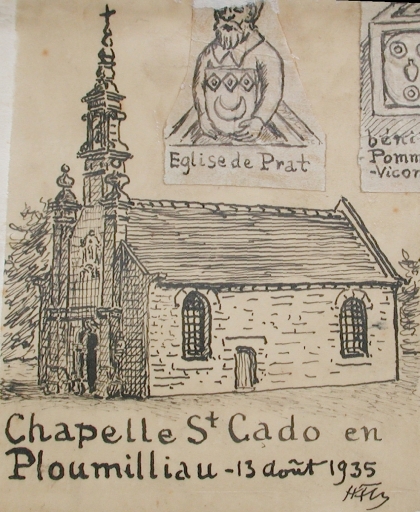 Eglise de Prat
béni
Pomm
-Vicom
Chapelle St Cado en
Ploumilliau - 13 doût 1935